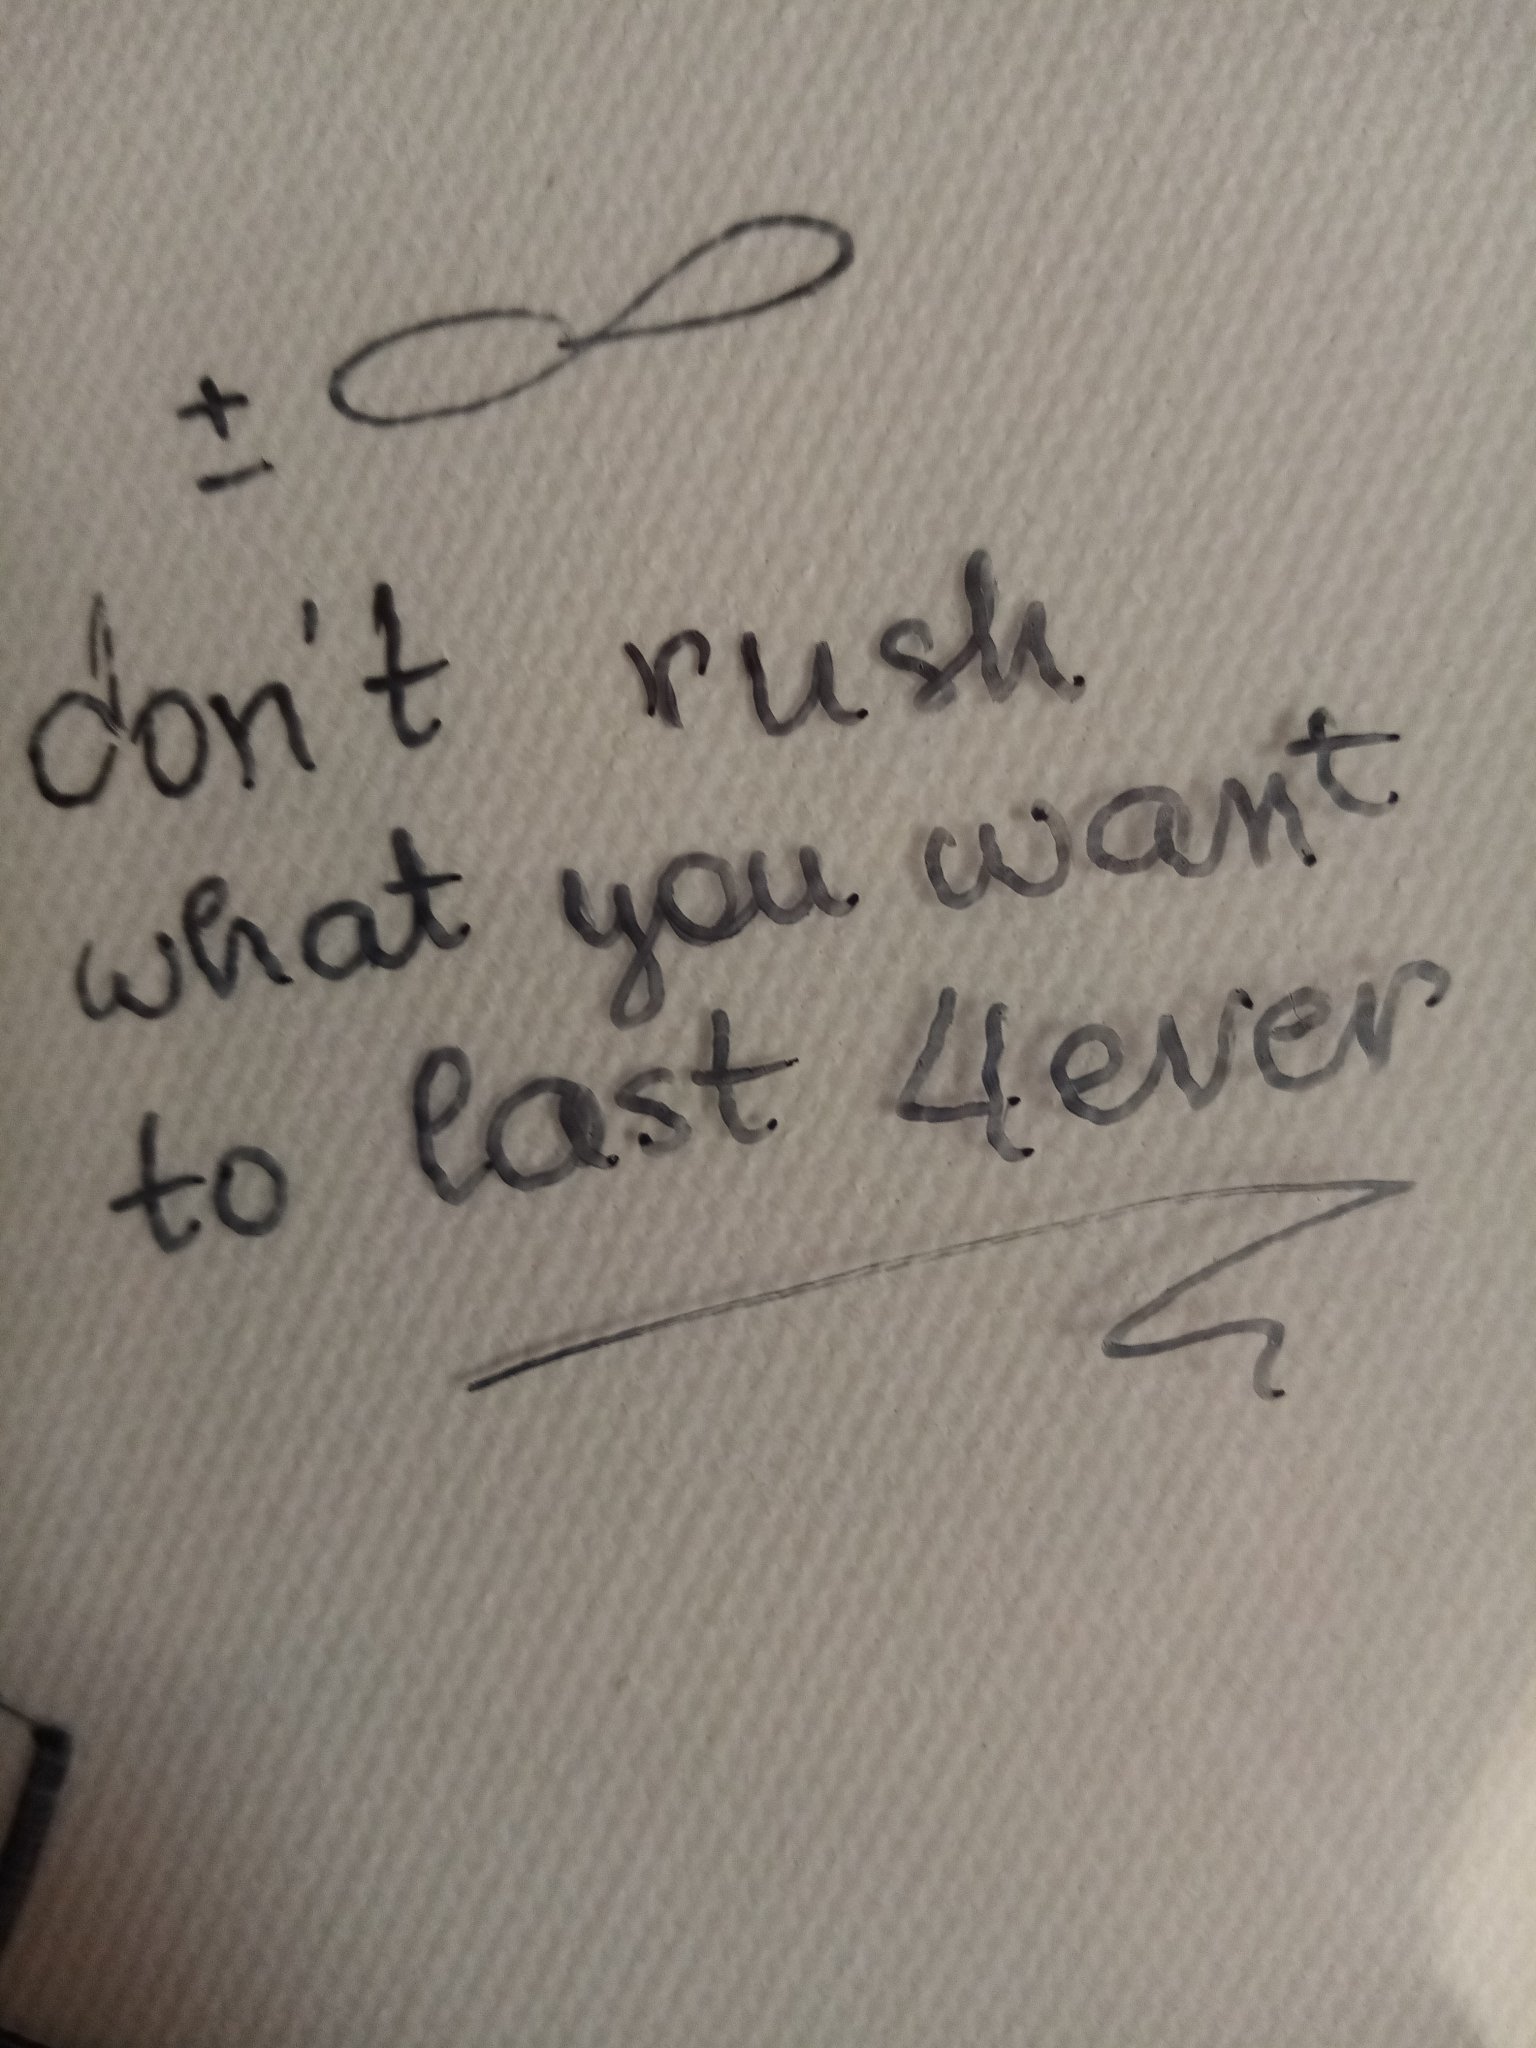 ± ∞
don't rush
what you want
to last 4ever